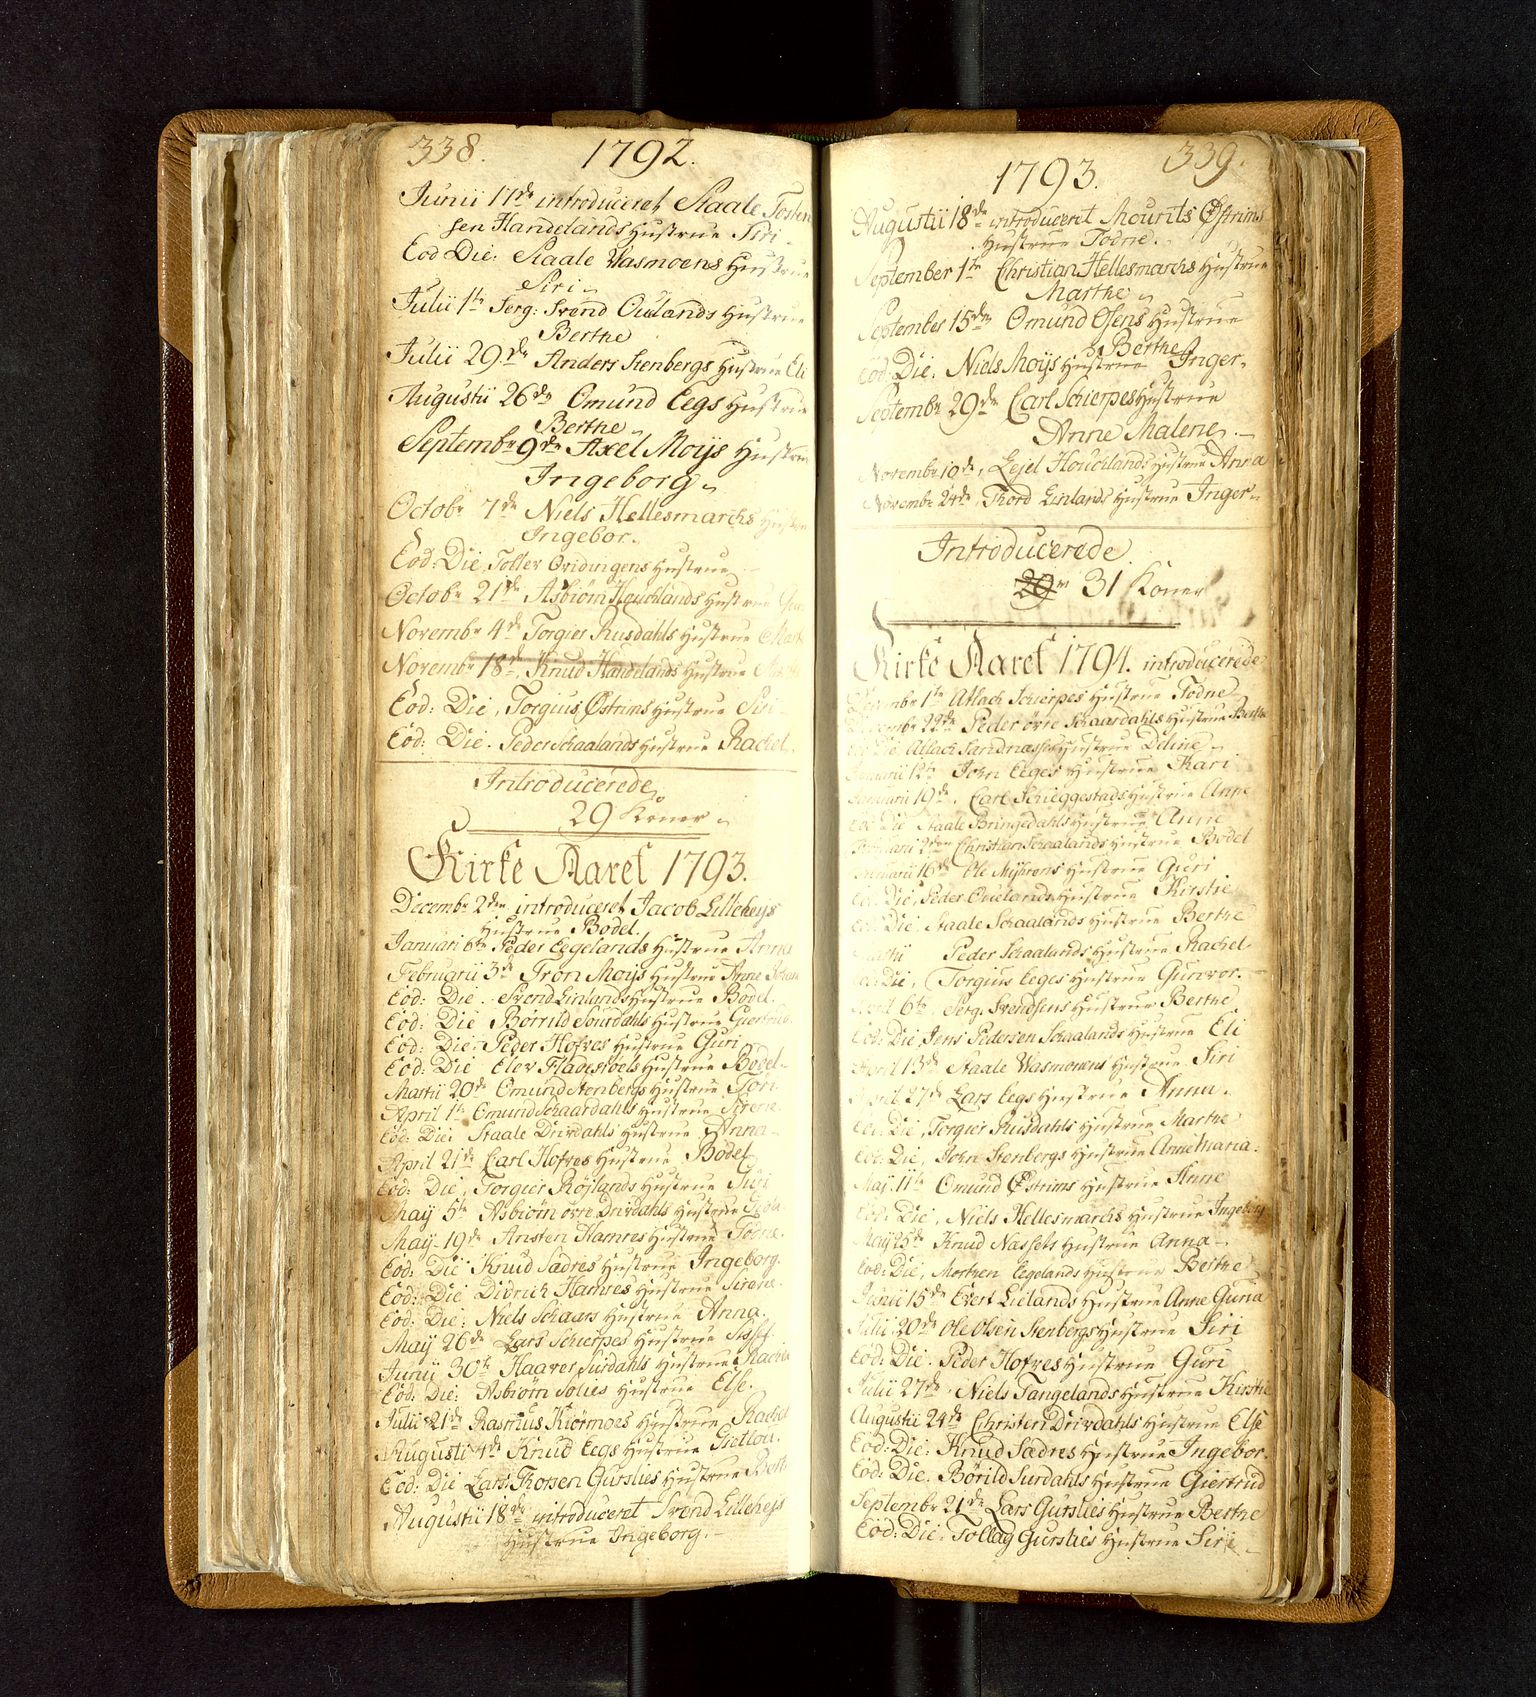 338.
1792.
Junii 11de introduceret Staale Tosten
sen Handelands Hustrue Siri
Eod Die: Staale Wasmoens Hustrue
Siri
Julii 1te Serg: Svend Ouelands Hustrue
Berthe
Julii 29de Anders Stenbergs Hustrue Eli
Augustii 26de Omund Eegs Hustrue
Berthe
Septembr 9de Axel Moijs Hustrue
Ingeborg
Octobr 7de Niels Hellesmarchs
Ingebor.
Eod Die, Hustrue
Octobr 21de Asbiörn Houchlands Hustrue
Novembr 4de Torgier Rusdahls Hustrue
Novembr 18de, Knud Handelands Hustrue
Eod: Die, Torgius Østrims Hustrue Siri
Eod: Die. Peder Schaalands Hustrue Rachel.
Introducerede
29 Koner
Kirke Aaret 1793.
Decembr 2den introduceret Jacob Lilleheys
Hustrue Bodel.
Januari 6te Peder Eegelands Hustrue Anna
Februarii 3de Tron Moijs Hustrue Anne
Eod: Die. Svend Linlands Hustrue Bodel.
Eod: Die Börrild Surdahls Hustrue Giertrud
Eod: Die Peder Hofves Hustrue Guri
Eod: Die Elev Hustrue Bodel
Martii 20de Omund Stenbergs Hustrue Tori
April 1te Omund Schaardahls Hustrue Sirene
Eod: Die: Staale Drivdahls Hustrue Anna
April 21de Carl Hofves Hustrue Bodel
Eod: Die, Torgier Röjlands Hustrue Siri
Maij 5te Asbiörn övre Drivdahls Hustrue
Maij 19de Ansten Hamres Hustrue Todne.
Eod: Die Knud Sædres Hustrue Ingeborg.
Eod: Die Didrich Hamres Hustrue Sirene
Eod: Die: Niels Schaars Hustrue Anna.
Maij 26de Lars Schierpes Hustrue
Junii 30te Haaver Surdahls Hustrue Rachel
Eod: Die: Asbiörn Solies Hustrue Else.
Julii 21de Rasmus Kiörmoes Hustrue Rachel
Augusti 4de Knud Eegs Hustrue
Eod: Die Lars Thorsen Gurslies Hustrue
Augustii 18de introduceret Svend Lilleheys
Hustrue Ingeborg.
1793.
339.
Augustii 18de introduceret Mourits Østrims
Hustrue Todne.
September 1te Christian Hellesmarchs Hustrue
Marthe
September 15de Omund Osens Hustrue
Berthe
Eod: Die. Niels Moijs Hustrue Inger.
Septembr 29de Carl Schierpes Hustrue
Anne Malene.
Novembr 10de, Ejel Houchlands Hustrue Anna
Novembr 24de, Thord Linlands Hustrue Inger
Introducerede
29 31 Koner
Kirke Aaret 1794. introducerede
Decembr 1te Atlach Schierpes Hustrue Todne
Decembr 22de Peder övre Schaardahls Hustrue Berthe
Eod: Die Atlach Sandnæsses Hustrue
Januarii 12te John Eeges Hustrue Kari
Januarii 19de. Carl Schieggestads Hustrue Anne
Eod: Die Staale Bringedahls Hustrue Anne
Christian Schaalands Hustrue Bodel
16de Ole Hustrue Guri
Eod: Die, Peder Ouelands Hustrue Kirstie
Eod: Die, Staale Schaalands Hustrue Berthe
Martii Peder Schaalands Hustrue Rachel
Eod: Die, Torgius Eeges Hustrue Gunvor.
April 6te Serg. Svendsens Hustrue Berthe
Eod: Die, Jens Pedersen Schaalands Hustrue Eli
April 13de Staale Wasmoens Hustrue Siri
April 27de Lars Eegs Hustrue Anna.
Eod: Die, Torgier Rusdahls Hustrue Marthe
Eod: Die, John Stenbergs Hustrue Anne Maria.
Maij 11te Omund Østrims Hustrue Anne
Eod: Die, Niels Hellesmarchs Hustrue Ingeborg
Maij 25de Knud Hustrue Anna
Eod: Die, Mortzen Eegelands Hustrue Berthe
Junii 15de Evert Lielands Hustrue Anne Guria
Julii 20de Ole Olsen Stenbergs Hustrue Siri
Eod: Die: Peder Hofves Hustrue Guri
Julii 27de. Niels Tangelands Hustrue Kirstie
Augustii 24de Christen Drivdahls Hustrue Else
Eod: Die: Knud Sædres Hustrue Ingebor.
Eod: Die. Börild Surdahls Hustrue Giertrud
Septembr 21de Lars Gurslies Hustrue Berthe
Eod: Die: Tollag Gurslies Hustrue Siri